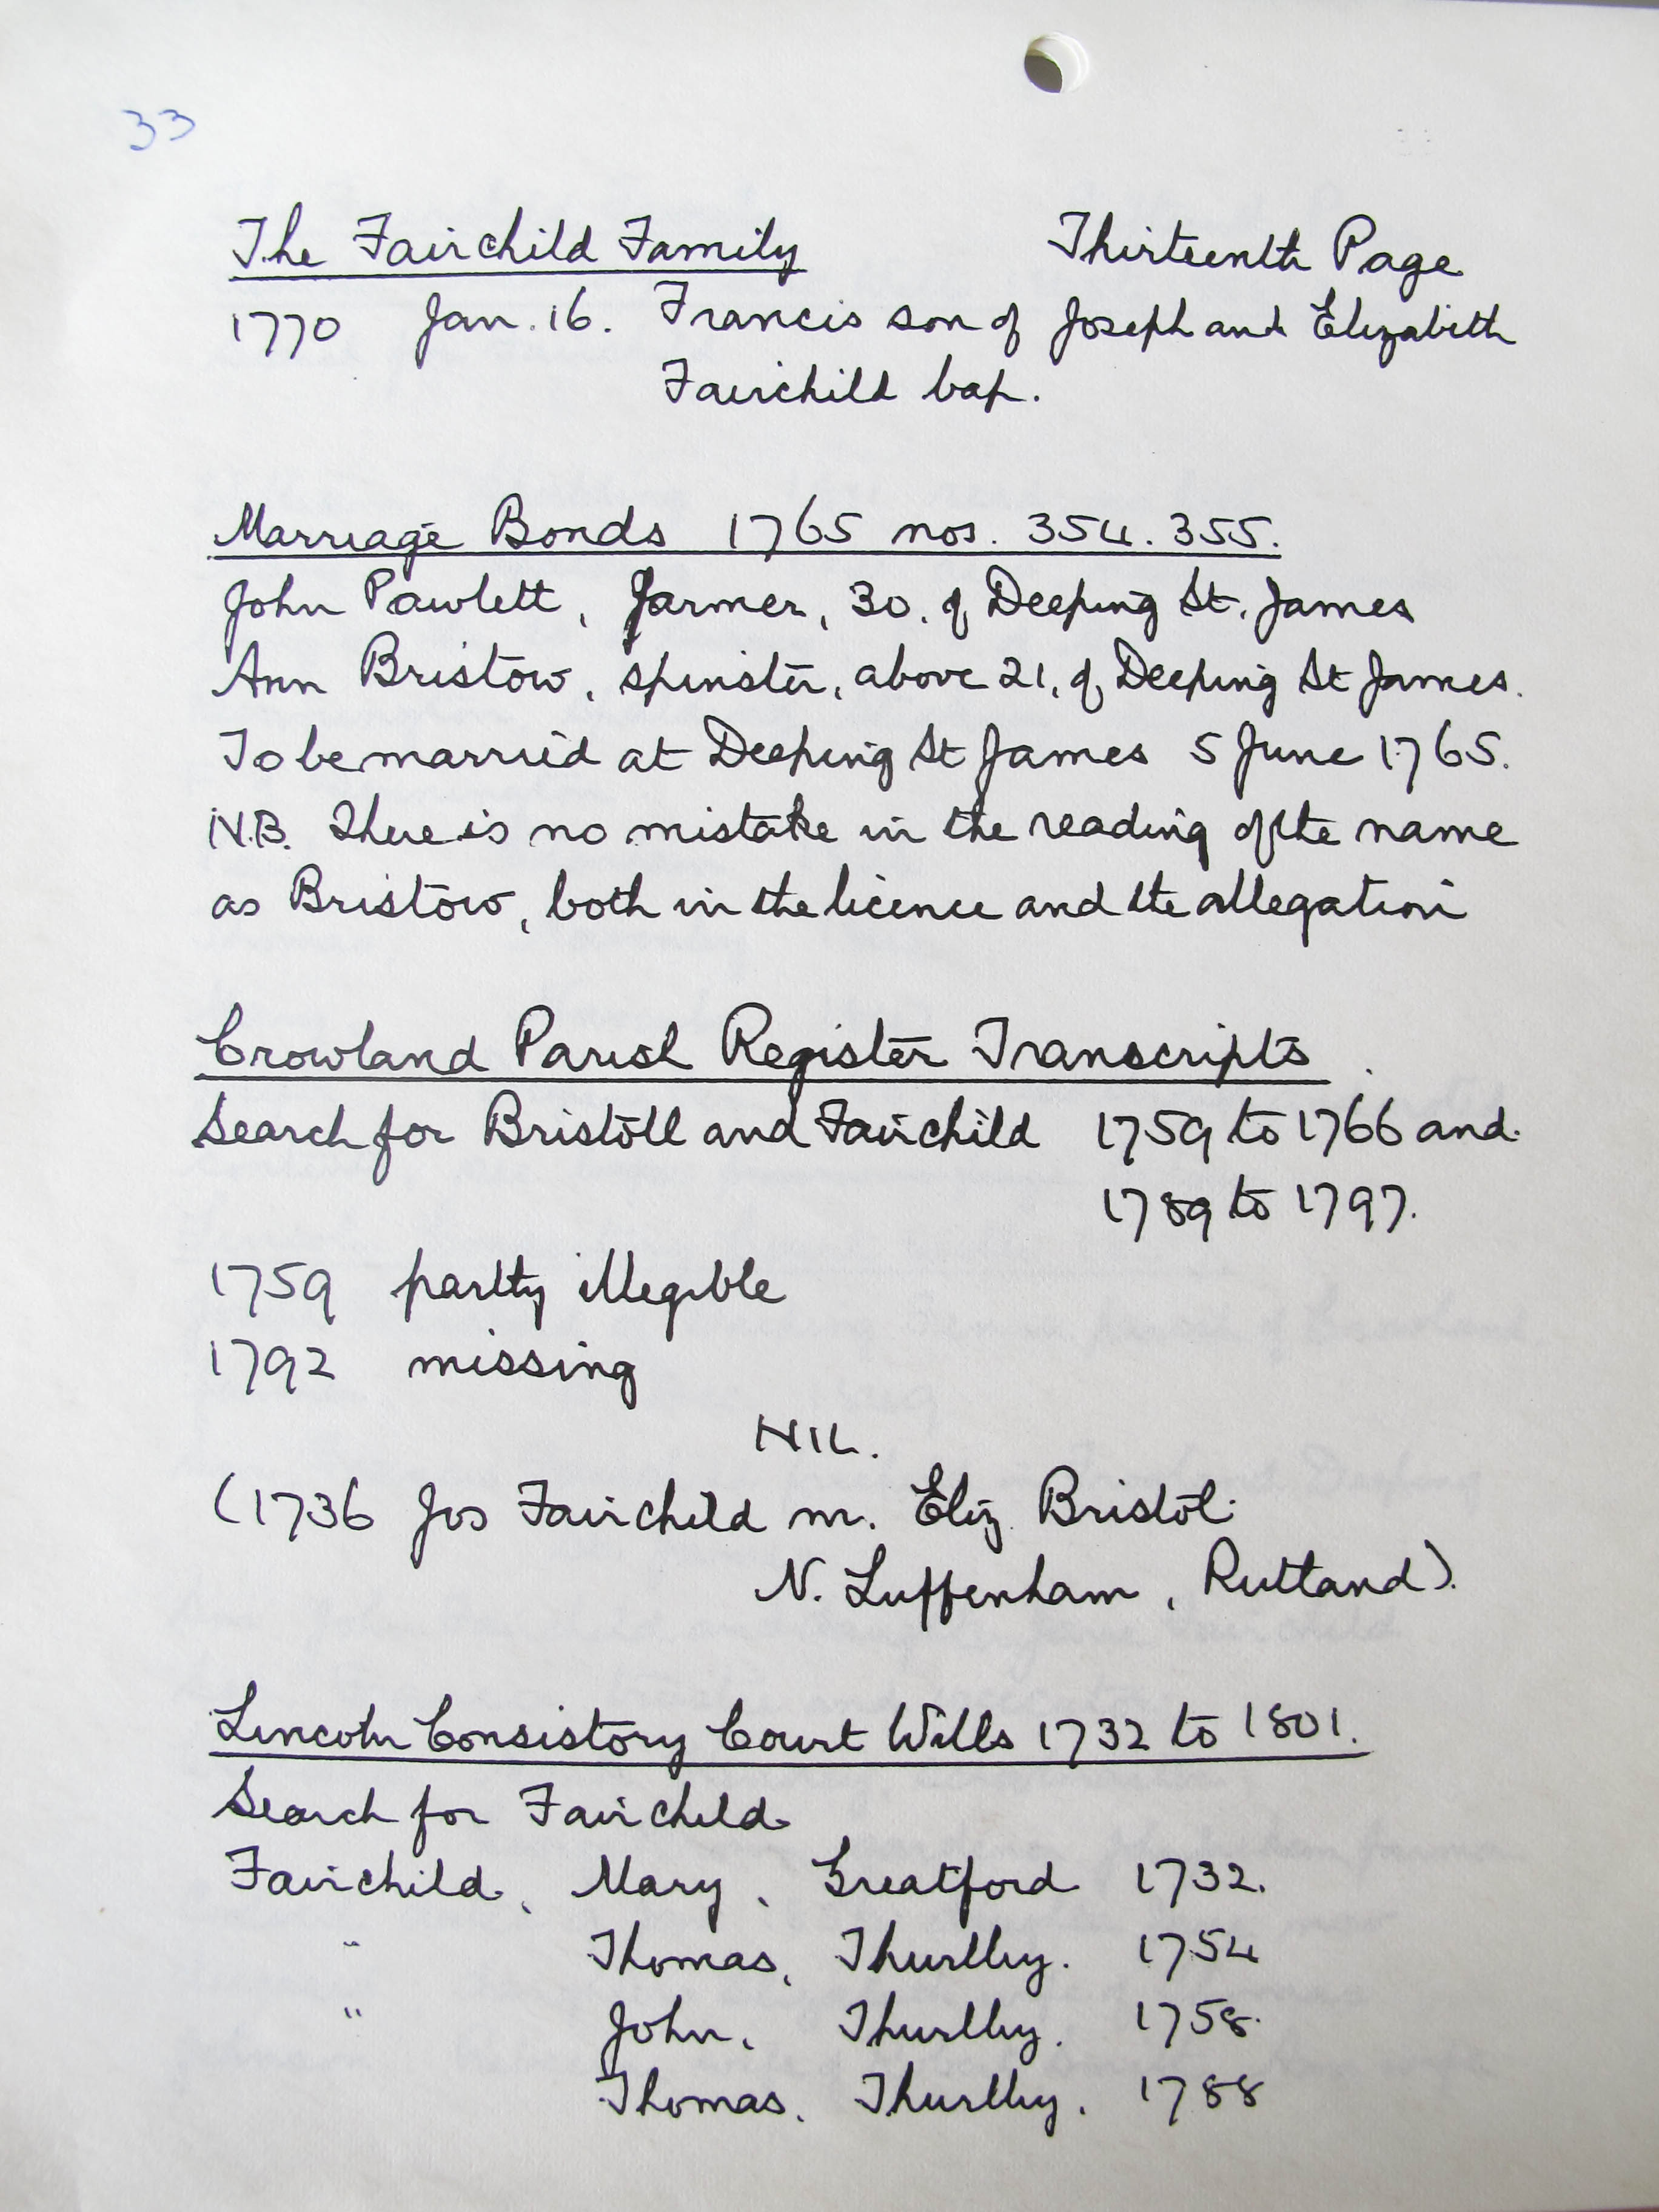 33
The Fairchild Family Thirteenth Page
1770 Jan. 16. Francis son of Joseph and Elizabeth
Fairchild bap.
Marriage Bonds 1765 nos. 354. 355.
John Pawlett, farmer, 30. of Deeping St. James
Ann Bristow, spinster, above 21, of Deeping St James.
To be married at Deeping St James 5 June 1765.
N.B. There is no mistake in the reading of the name
as Bristow, both in the licence and the allegation
Crowland Parish Register Transcripts
Search for Bristoll and Fairchild 1759 to 1766 and
1789 to 1797.
1759 partly illegible
1792 missing
NIL.
(1736 Jos Fairchild m. Eliz. Bristol
N. Luffenham, Rutland).
Lincoln Consistory Court Wills 1732 to 1801.
Search for Fairchild
Fairchild, Mary, Greatford 1732.
" Thomas, Thurlby. 1754
" John, Thurlby. 1758.
Thomas, Thurlby. 1788